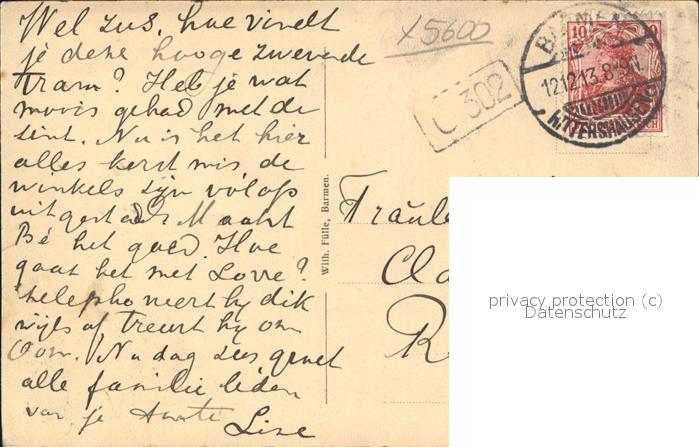 Wel zus, hoe vindt
je deze hooge zwevende
tram? Heb je wat
moois gehad met de
sint. Nu is het hier
alles kerstmis de
winkels zijn volop
uitgestald. Maakt
Bé het goed. Hoe
gaat het met Lovre?
telephoneert hij dik
wijls of treurt hij om
Oom. Nu dag zus groet
alle familie leden
van je tante
Line
x5600
C 302
10
BARMEN
12.12.13. 8-9N.
RITTERSHAUSEN
Wilh. Fülle, Barmen.
Fräule
Cla
R
privacy protection (c)
Datenschutz